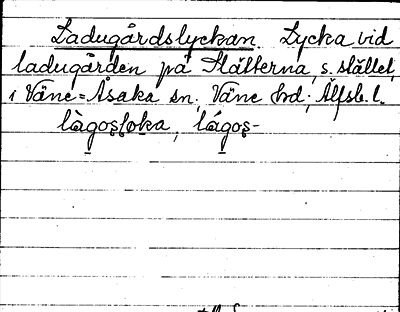 Ladugårdslyckan. Lycka vid
ladugården på Slätterna, s. stället,
i Väne-Åsaka sn, Väne hrd; Älfsb. l.